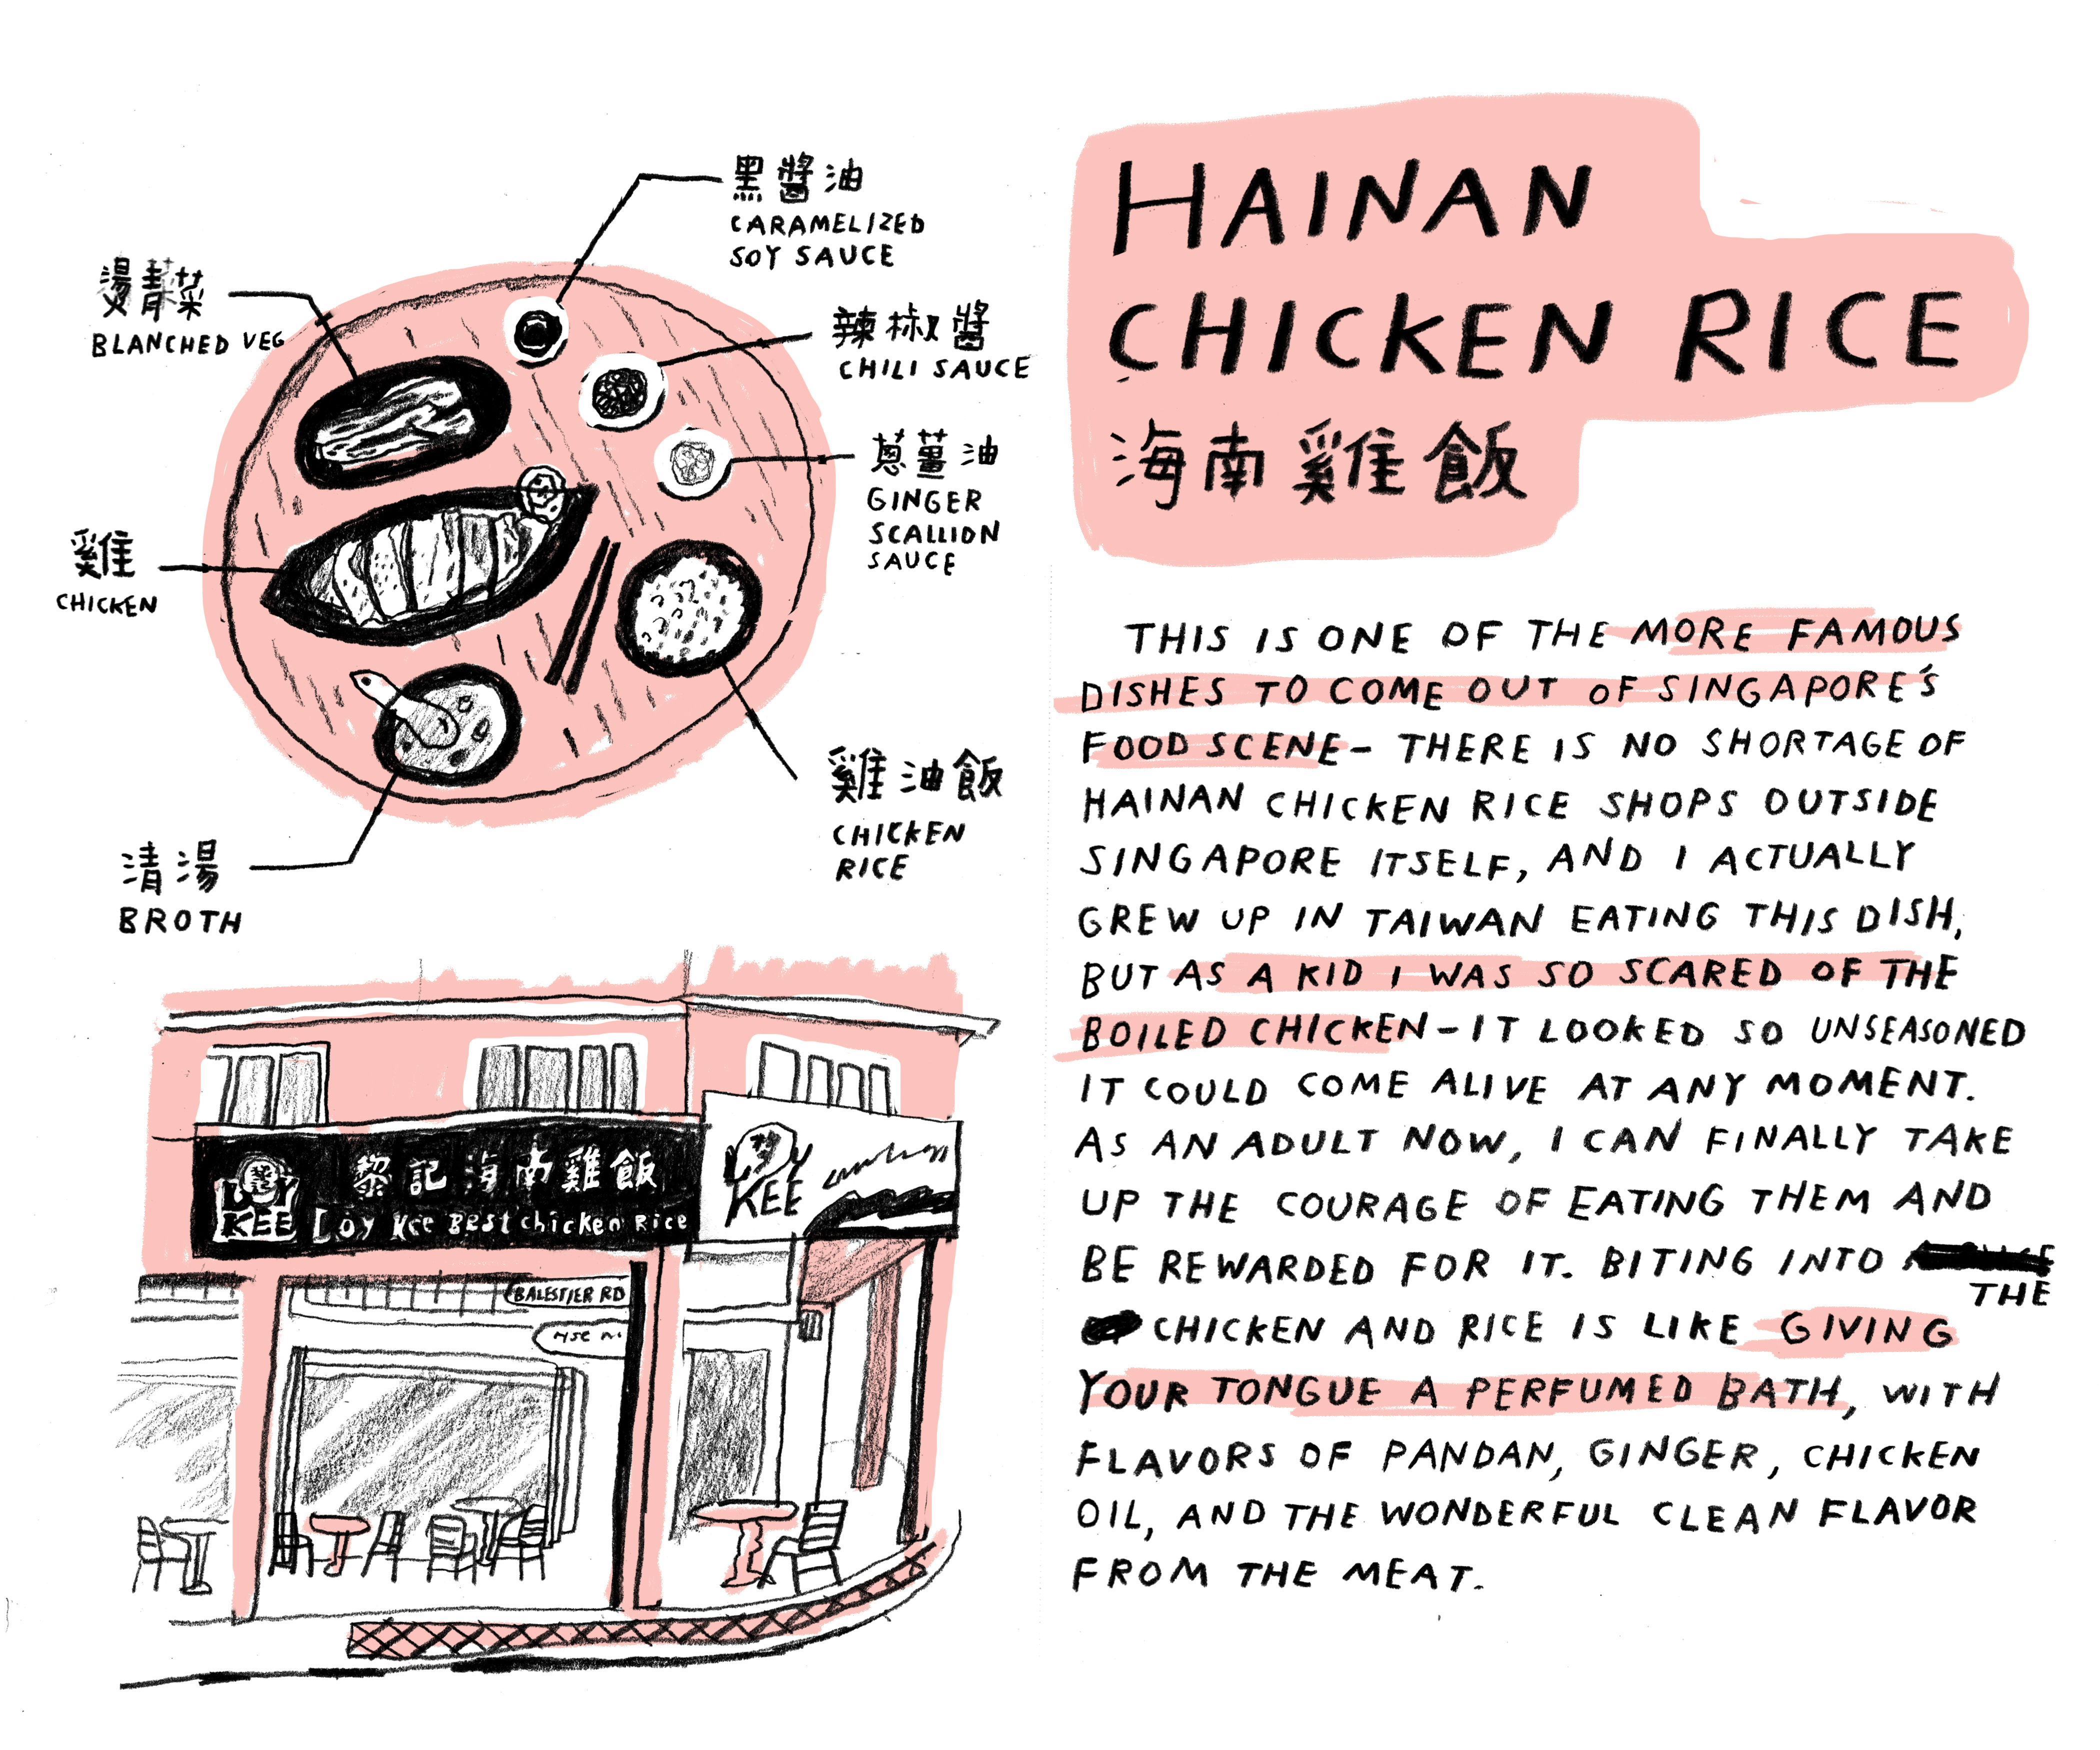 黑醬油
CARAMELIZED
SOY SAUCE
燙青菜
BLANCHED VEG
辣椒醬
CHILI SAUCE
蔥薑油
GINGER
SCALLION
SAUCE
雞
CHICKEN
雞油飯
CHICKEN
RICE
清湯
BROTH
LOY
KEE
黎記海南雞飯
Loy Kee Best chicken Rice
LOY
KEE
BALESTIER RD
HAINAN
CHICKEN RICE
海南雞飯
THIS IS ONE OF THE MORE FAMOUS
DISHES TO COME OUT OF SINGAPORE'S
FOOD SCENE- THERE IS NO SHORTAGE OF
HAINAN CHICKEN RICE SHOPS OUTSIDE
SINGAPORE ITSELF, AND I ACTUALLY
GREW UP IN TAIWAN EATING THIS DISH,
BUT AS A KID I WAS SO SCARED OF THE
BOILED CHICKEN-IT LOOKED SO UNSEASONED
IT COULD COME ALIVE AT ANY MOMENT.
AS AN ADULT NOW, I CAN FINALLY TAKE
UP THE COURAGE OF EATING THEM AND
BE REWARDED FOR IT. BITING INTO
THE
CHICKEN AND RICE IS LIKE GIVING
YOUR TONGUE A PERFUMED BATH, WITH
FLAVORS OF PANDAN, GINGER, CHICKEN
OIL, AND THE WONDERFUL CLEAN FLAVOR
FROM THE MEAT.